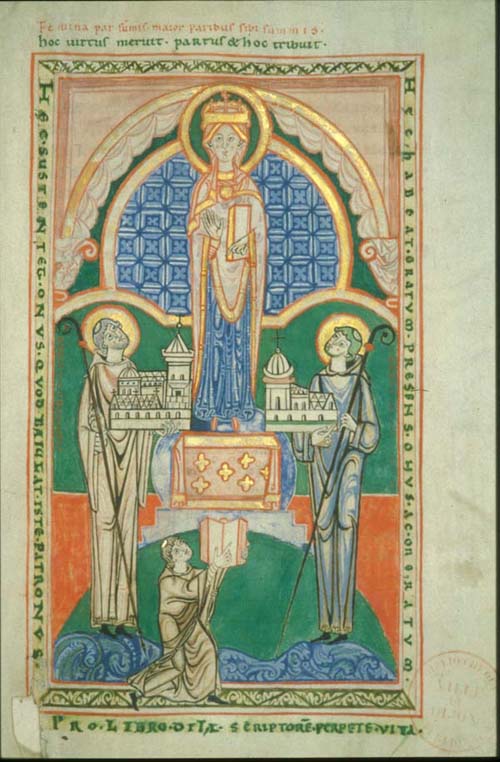 Femina par sum̄is maior paribus sibi summis.
hoc virtus meruit. partus & hoc tribuit.
HĘC. SUSTENTET. ONVS. QVOD BAIVLAT. ISTE. PATRONVS.
HĘC. HABEAT. GRATVM. PRESENS. ONVS. AC. ONERATVM.
PRO. LIBRO. SCRIPTORĒ. PERPETE. VITA.